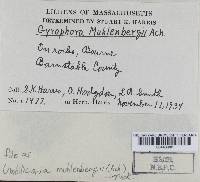 LICHENS OF MASSACHUSETTS
DETERMINED BY STUART K. HARRIS
Gyrophora Muhlenbergii Ach.
On rocks, Bourne
Barnstable County
Coll. S.K. Harris, A. Hodgdon, L.B. Smith
No. 1477. in Herb. Harris November 11, 1934
File as
Umbilicaria muhlenbergii (Ach.)